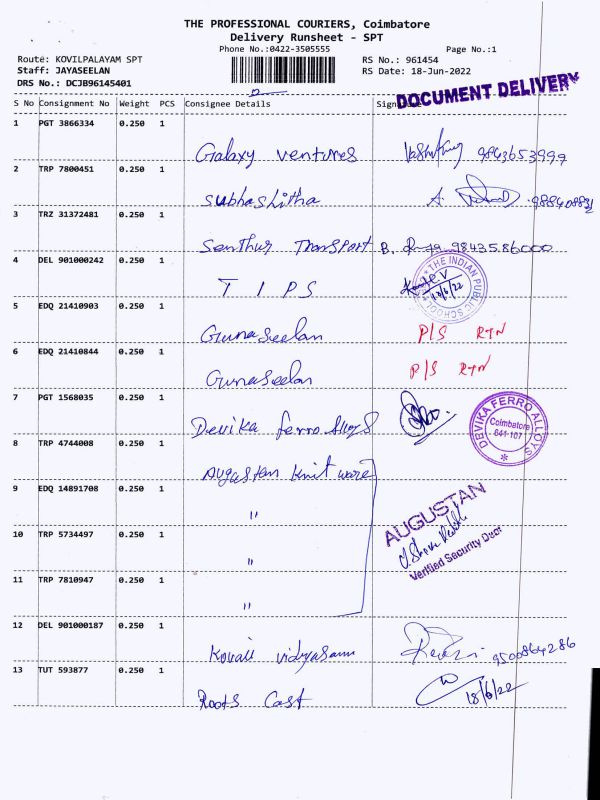 THE PROFESSIONAL COURIERS, Coimbatore
Delivery Runsheet - SPT
Phone No.:0422-3505555
Page No.:1
Route: KOVILPALAYAM SPT
RS No.: 961454
Staff: JAYASEELAN
RS Date: 18-Jun-2022
DRS No.: DCJB96145401
DOCUMENT DELIVERY
S No Consignment No Weight PCS Consignee Details Signature
1 PGT 3866334 0.250 1
Galaxy ventures 9843653999
2 TRP 7800451 0.250 1
Subhashitha A.
3 TRZ 31372481 0.250 1
Senthur Transport B. 98435.86000
4 DEL 901000242 0.250 1
T I P S
THE INDIAN PUBLIC SCHOOL
18/6/22
5 EDQ 21410903 0.250 1
Gunaseelan P/S RTN
6 EDQ 21410844 0.250 1
Gunaseelan P/S RTN
7 PGT 1568035 0.250 1
Devika ferro Alloys
DEVIKA FERRO ALLOYS
Coimbatore
641-107
8 TRP 4744008 0.250 1
Augastan Knit ware
9 EDQ 14891708 0.250 1
"
AUGUSTAN
Verified Security Dept
10 TRP 5734497 0.250 1
"
11 TRP 7810947 0.250 1
"
12 DEL 901000187 0.250 1
Kovai vidyasram 9500864286
13 TUT 593877 0.250 1
Roots Cast 18/6/22